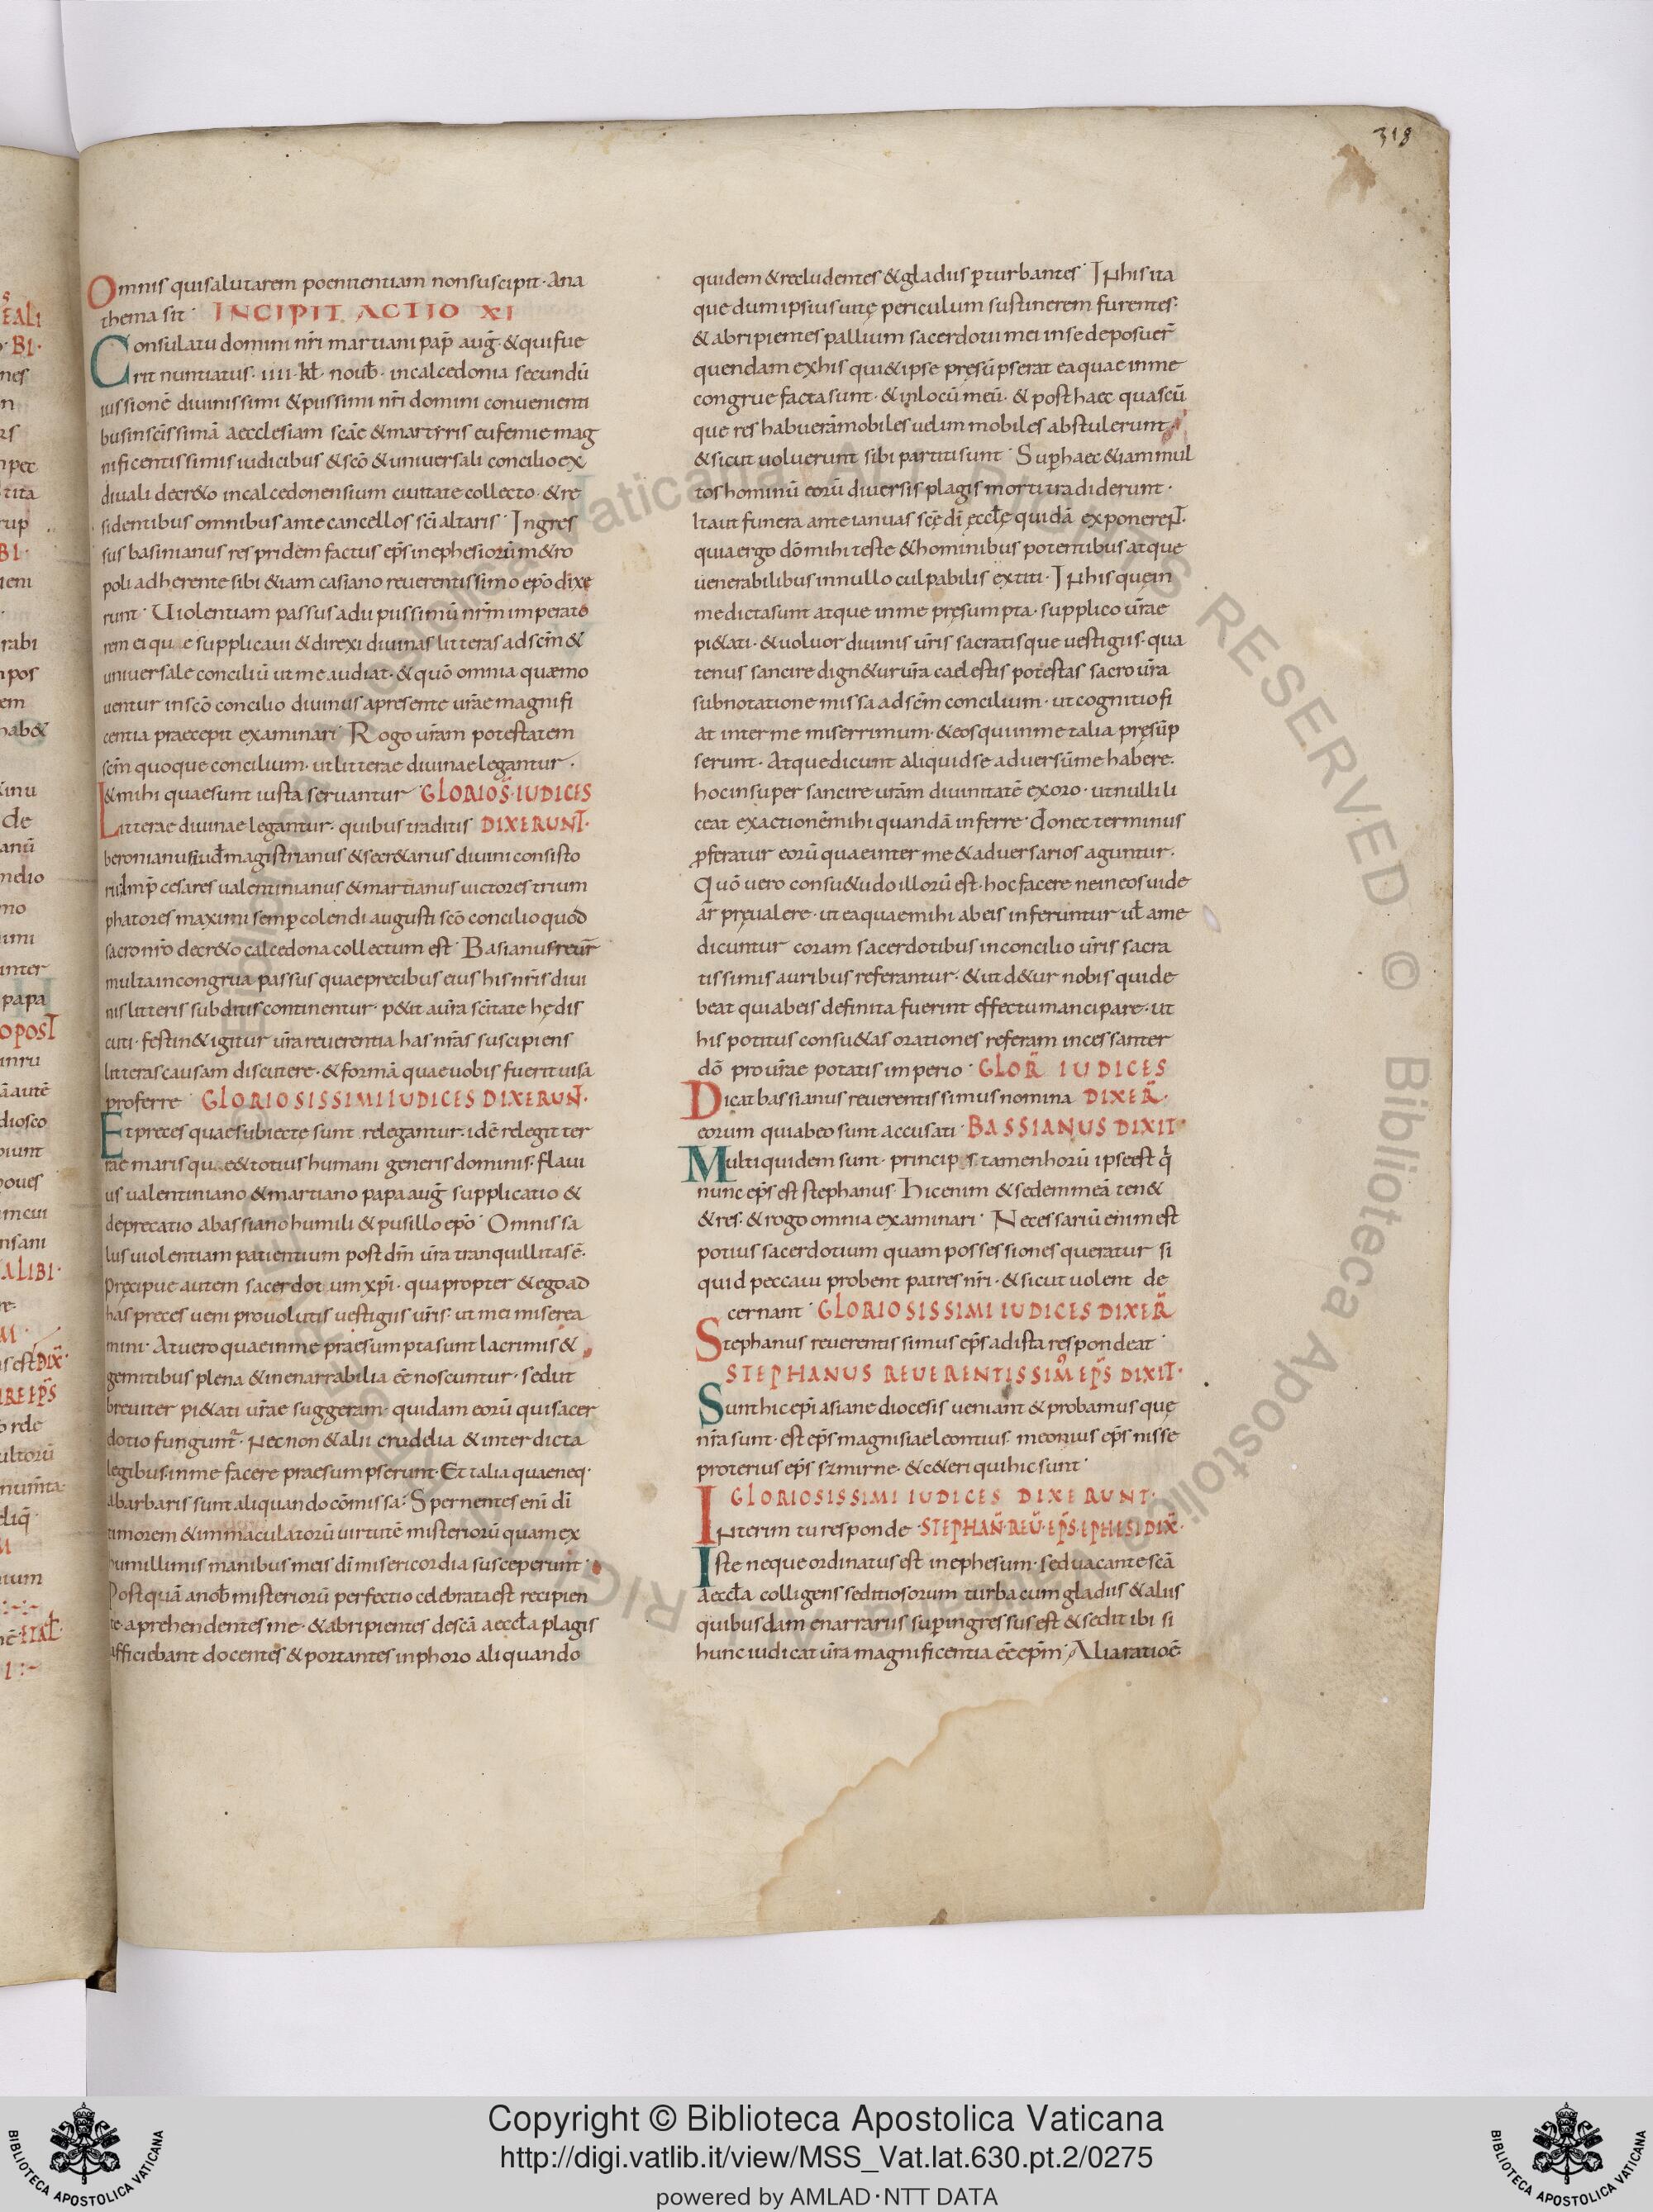 318
Omnis qui salutarem poenitentiam non suscipit · Ana
thema sit · INCIPIT ACTIO XI
Consulatu domini nr̄i martiani pap̄ aug̅ · & qui fue
rit nuntiatus · IIII · kł · nouƀ · in calcedonia secundū
iussionē diuinissimi & piissimi nr̄i domini conuenienti
bus in sc̄issimā aecclesiam sc̄ae & martyris eufemie mag
nificentissimis iudicibus & sc̄o & uniuersali concilio ex
diuali decr&o in calcedonensium ciuitate collecto · & re
sidentibus omnibus ante cancellos sc̄i altaris · Ingres
sus basinianus res pridem factus ep̄s in ephesiorūm&ro
poli adherente sibi &iam casiano reuerentissimo ep̄o dixe
runt · Uiolentiam passus adii piissimū nr̄m imperato
rem eique supplicaui & direxi diuinas litteras ad sc̄m &
uniuersale conciliū ut me audiat · & quō omnia quæ mo
uentur in sc̄o concilio diuinus a presente ur̄ae magnifi
centia praecepit examinari · Rogo ur̄am potestatem
sc̄m quoque concilium · ut litterae diuinae legantur ·
& mihi quae sunt iusta seruantur · GLORIOS̄ · IUDICES
Litterae diuinae legantur · quibus traditis DIXERUNT ·
beronianus iud̄ magistrianus & secr&arius diuini consisto
rii · Imp̄ cesares ualentinianus & martianus uictores trium
phatores maximi semp̱ colendi augusti sc̄o concilio quod
sacro nr̄o decr&o calcedona collectum est · Basianus reur̄
multa incongrua passus quae precibus eius his nr̄is diui
nis litteris subditus continentur · p&it a ur̄a sc̄itate hęc dis
cuti · festin& igitur ur̄a reuerentia has nr̄as suscipiens
litteras causam discutere · & formā quae uobis fuerit uisa
proferre GLORIOSISSIMI IUDICES DIXERUNT ·
Et preces quae subiecte sunt relegantur · idē relegit ter
rae marisque & totius humani generis dominis · flaui
us ualentiniano & martiano papa aug̅ supplicatio &
deprecatio a bassiano humili & pusillo ep̄o · Omnis sa
lus uiolentiam patientium post dm̄ ur̄a tranquillitas ē ·
Pręcipue autem sacerdotum xp̄i · quapropter & ego ad
has preces ueni prouolutis uestigiis ur̄is · ut mei miserea
mini · At uero quae in me praesumpta sunt lacrimis &
gemitibus plena & inenarrabilia eē noscuntur · sed ut
breuiter pi&ati ur̄ae suggeram · quidam eorū qui sacer
dotio fungunt̄ · Necnon & alii crudelia & interdicta
legibus in me facere praesumpserunt · Et talia quae neq ·
a barbaris sunt aliquando cōmissa · Spernentes enī di̅
timorem & immaculatorū uirtutē misteriorū quam ex
humillimis manibus meis di̅ misericordia susceperunt ·
Postquā a noƀ misteriorū perfectio celebrata est recipien
te · aprehendentes me · & abripientes de sc̄a aeccła plagis
afficiebant docentes & portantes in phoro aliquando
quidem & recludentes & gladiis p̱turbantes · In his ita
que dum ipsius uitę periculum sustinerem furentes ·
& abripientes pallium sacerdotii mei in se deposuer̄
quendam ex his qui & ipse pręsūpserat ea quae in me
congrue facta sunt · & in locū meū · & post haec quascū
que res habuerā mobiles uel inmobiles abstulerunt ·
& sicut uoluerunt sibi partiti sunt · Sup̱ haec &iam mul
tos hominū eorū diuersis plagis morti tradiderunt ·
Ita ut funera ante ianuas sc̄ę di̅ ęccłę quidā exponerent ·
quia ergo dō mihi teste & hominibus potentibus atque
uenerabilibus in nullo culpabilis extiti · In his que in
me dicta sunt atque in me pręsumpta · supplico ur̄ae
pi&ati · & uoluor diuinis ur̄is sacratisque uestigiis · qua
tenus sancire dign&ur ur̄a caelestis potestas sacro ur̄a
subnotatione missa ad sc̄m concilium · ut cognitio fi
at inter me miserrimum · & eos qui in me talia pręsūp
serunt · Atque dicunt aliquid se aduersū me habere ·
hoc insuper sancire ur̄ām diuinitatē exoro · ut nulli li
ceat exactionē mihi quandā inferre · donec terminus
p̱feratur eorū quae inter me & aduersarios aguntur ·
Quō uero consu&udo illorū est · hoc facere ne in eos uide
ar pręualere · ut ea quae mihi ab eis inferuntur uł a me
dicuntur coram sacerdotibus in concilio ur̄is sacra
tissimis auribus referantur · & ut d&ur nobis qui de
beat qui ab eis definita fuerint effectu mancipare · ut
his potitus consu&as orationes referam incessanter
dō pro ur̄ae potatis imperio · GLOR̄ IUDICES
Dicat bassianus reuerentissimus nomina DIXER̄ ·
eorum qui ab eo sunt accusati · BASSIANUS DIXIT ·
Multi quidem sunt · princips tamen horū ipse est q̄
nunc ep̄s est stephanus · Hic enim & sedem meā ten&
& res · & rogo omnia examinari · Necessariū enim est
potius sacerdotium quam possessiones queratur si
quid peccaui probent patres nr̄i · & sicut uolent de
cernant · GLORIOSISSIMI IUDICES DIXER̄
Stephanus reuerentissimus ep̄s ad ista respondeat ·
STEPHANUS REUERENTISSIM9 EP̄S DIXIT ·
Sunt hic ep̄i asiane diocesis ueniant & probamus que
nr̄a sunt · est ep̄s magnisiae leontius · meonius ep̄s nisse
proterius ep̄s szmirne · & c&eri qui hic sunt ·
GLORIOSISSIMI IUDICES DIXERUNT ·
Interim tu responde · STEPHAN̄ · REU̅ · EP̄S · EPHESI DIX̄ ·
Iste neque ordinatus est in ephesum · sed uacante sc̄ā
aeccła colligens seditiosorum turba cum gladiis & aliis
quibusdam enarrariis sup̱ingressus est & sedit ibi si
hunc iudicat ur̄a magnificentia eē ep̄m · Alia ratio ē ·
Copyright © Biblioteca Apostolica Vaticana
http://digi.vatlib.it/view/MSS_Vat.lat.630.pt.2/0275
powered by AMLAD·NTT DATA
BIBLIOTECA APOSTOLICA VATICANA
BIBLIOTECA APOSTOLICA VATICANA